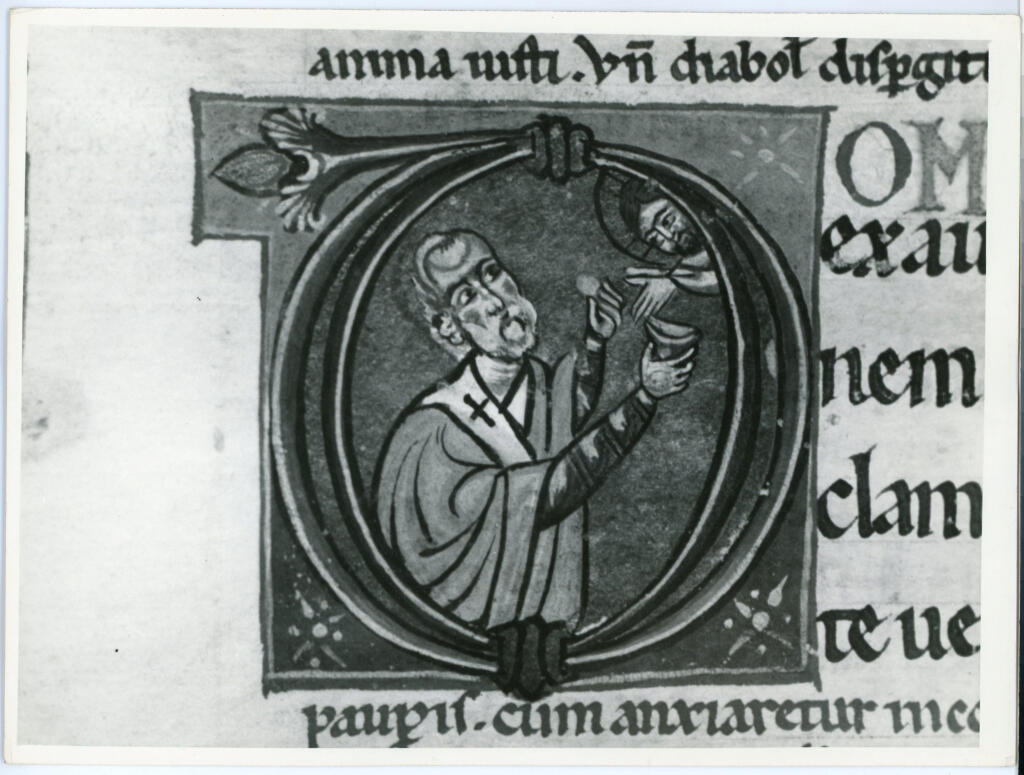 anima iusti. Vn̄ diabol̄ disꝑgit
D OM
exau
nem
clam
te ue
pauꝑis. cum anxiaretur in co